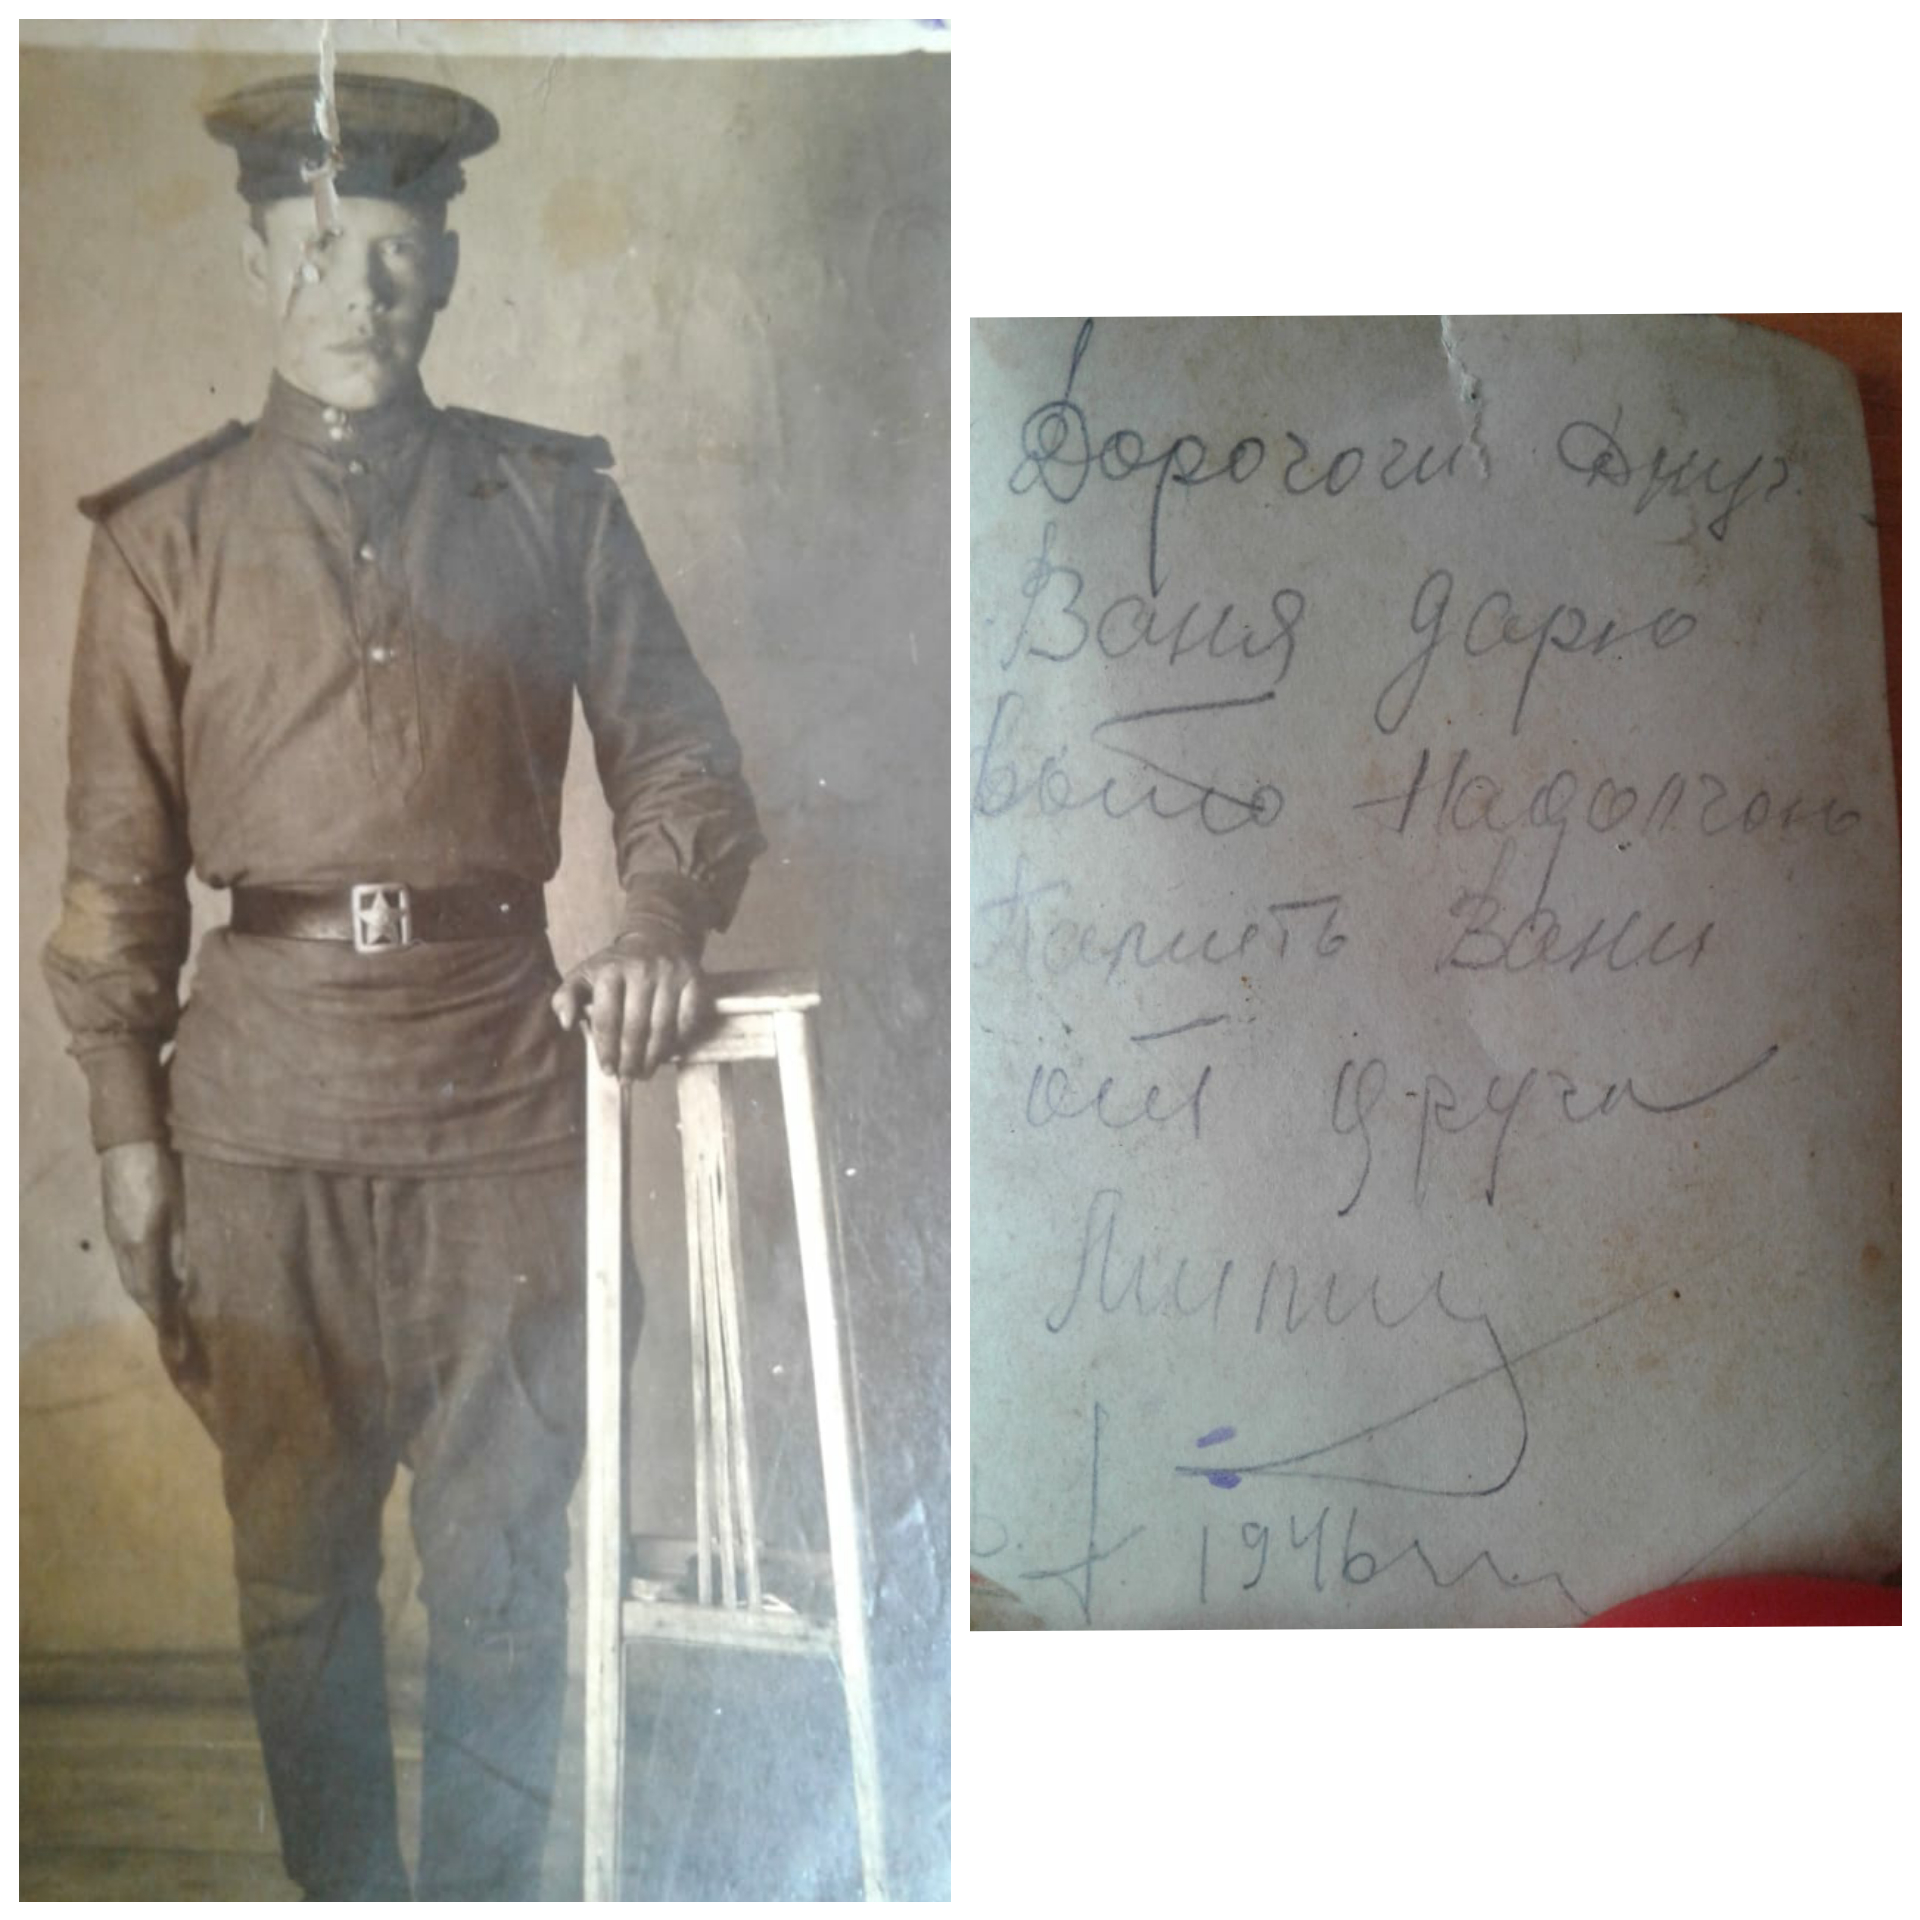 Дорогой Друг
Ваня дарю
фото Надолгою
Память Вани
от друга
1946 г.